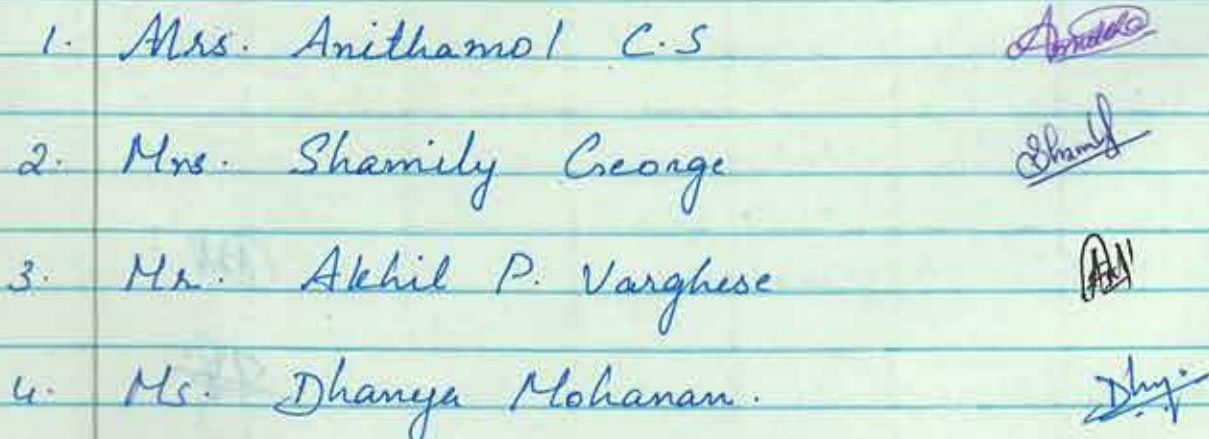 1. Mrs. Anithamol C.S
2. Mrs. Shamily George Shamily
3. Mr. Akhil P. Varghese
4. Ms. Dhanya Mohanan.